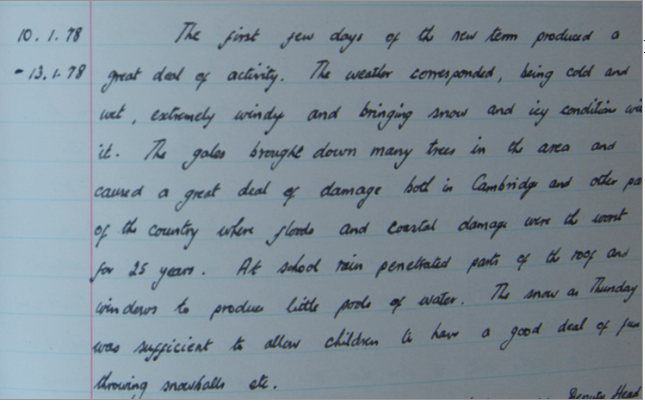 10.1.78 The first few days of the new term produced a
- 13.1.78 great deal of activity. The weather corresponded, being cold and
wet, extremely windy and bringing snow and icy condition
it. The gales brought down many trees in the area and
caused a great deal of damage both in Cambridge and other
of the country where floods and coastal damage were the worst
for 25 years. At school rain penetrated parts of the roof and
windows to produce little pools of water. The snow on Thursday
was sufficient to allow children to have a good deal of fun
throwing snowballs etc.
Deputy Head